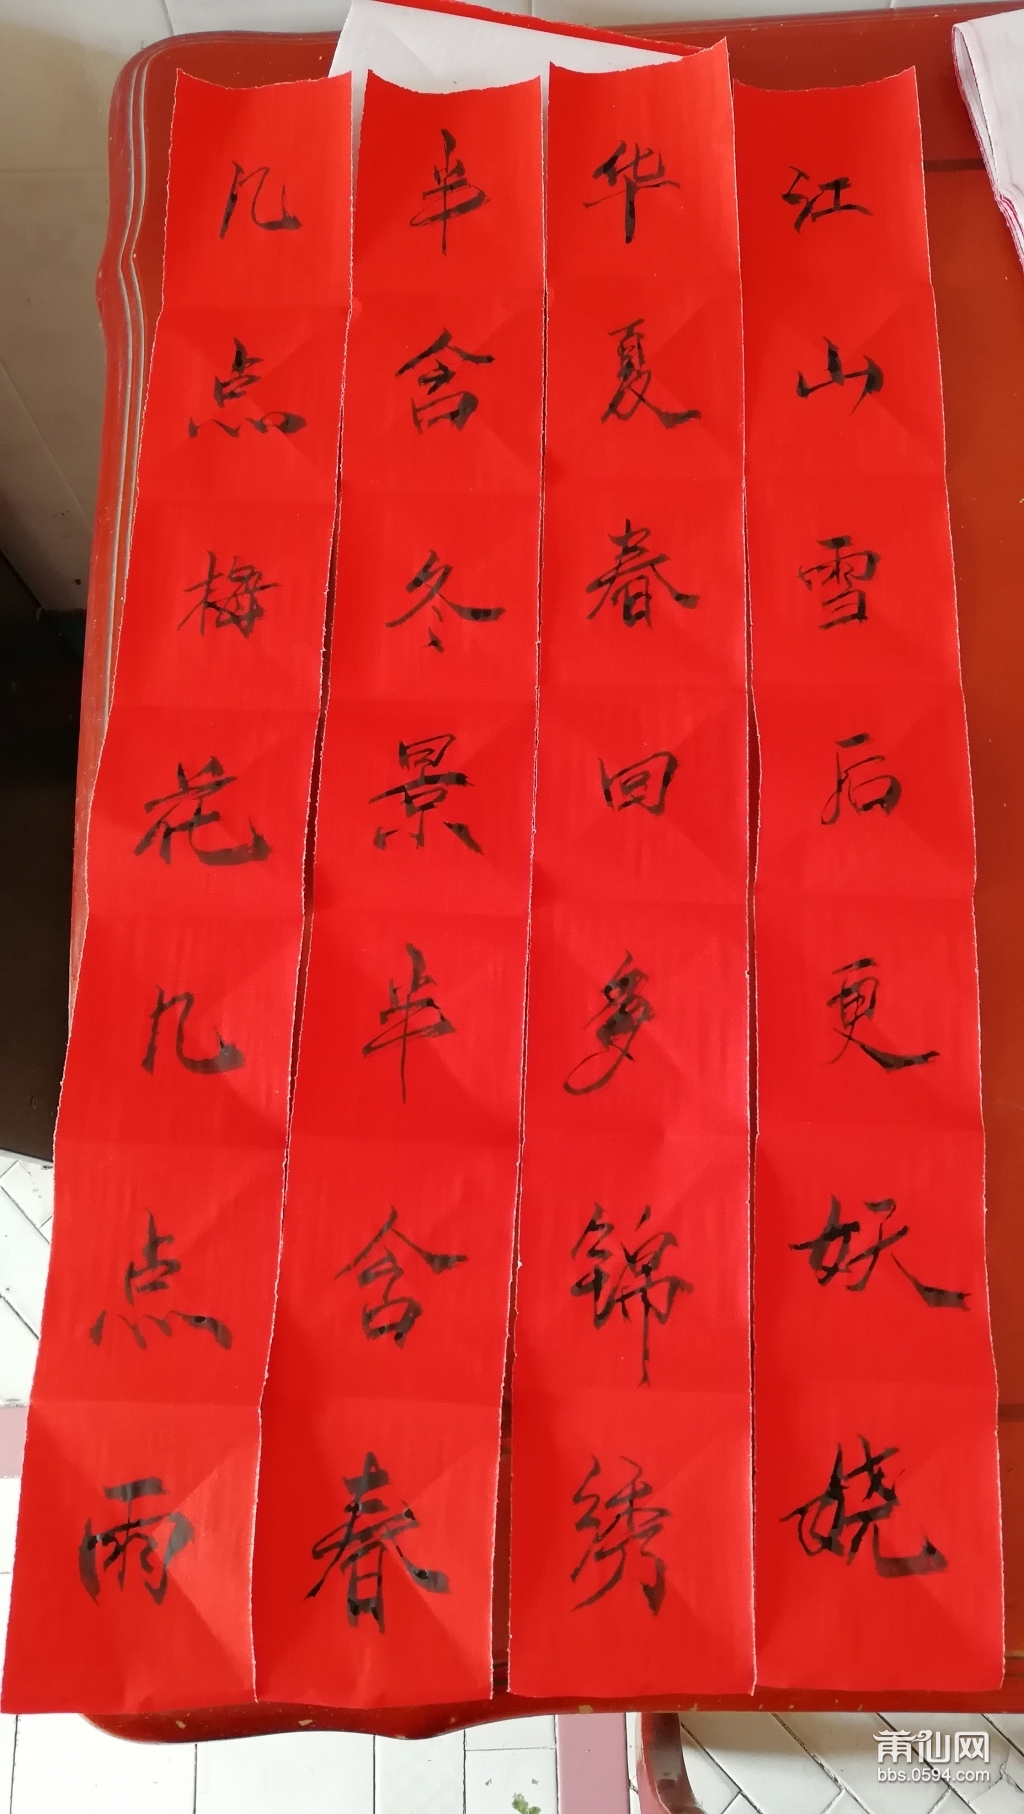 江山雪后更妖娆
华夏春回多锦绣
半含冬景半含春
几点梅花几点雨
莆仙网
bbs.0594.com